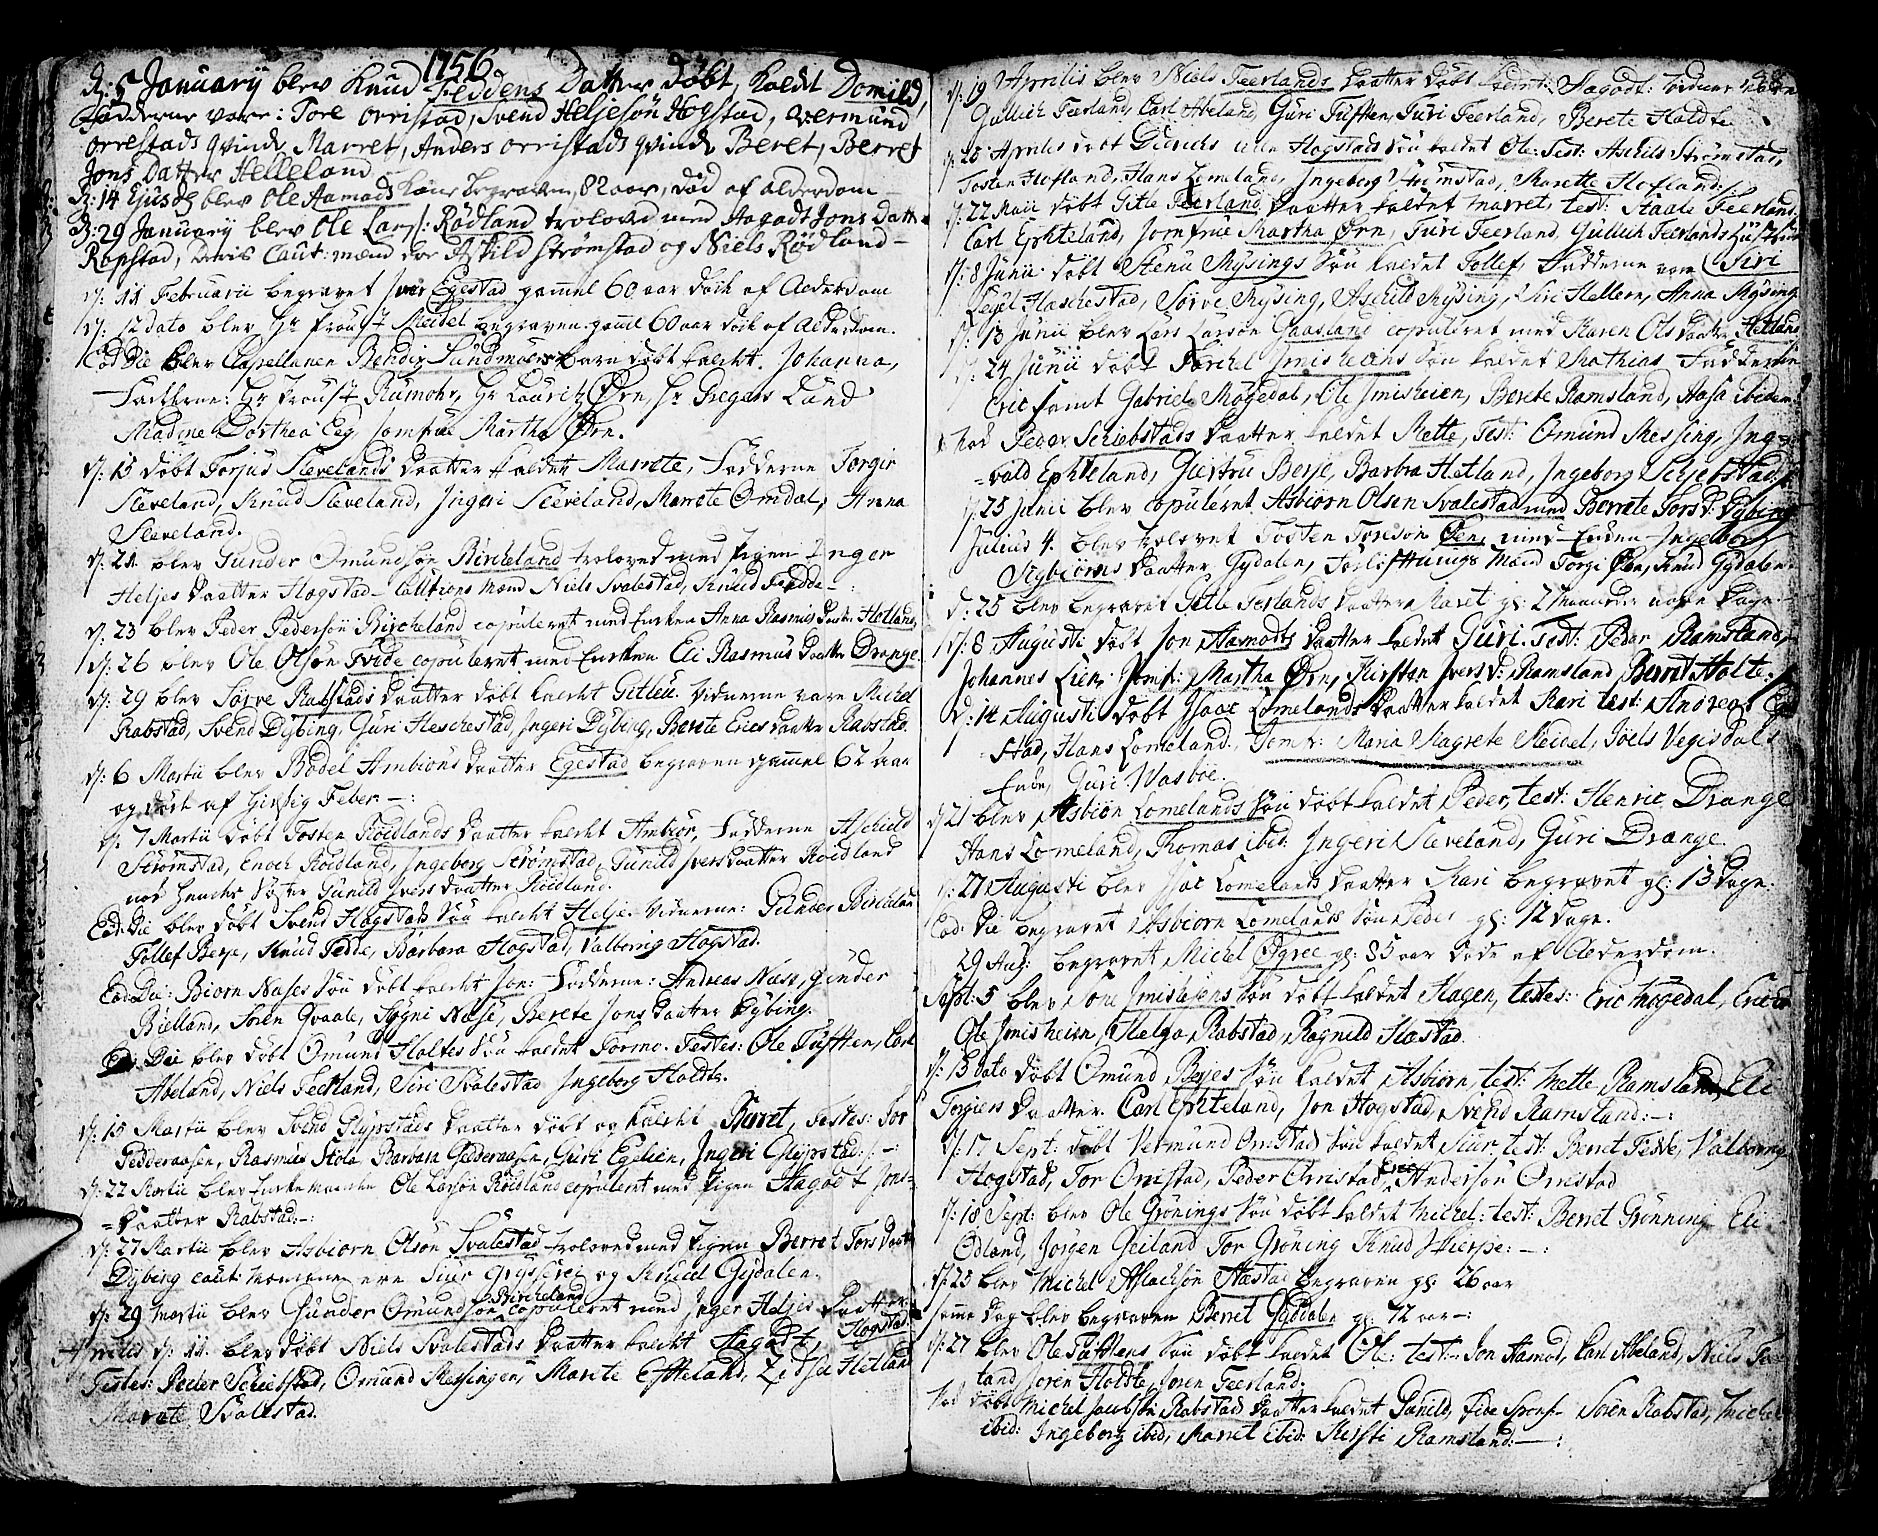 1756
d: 5 January blev Knud Feddens Datter døbt, kaldt Domild,
Fadderne vare: Tore Orristad, Svend Heljesøn Hogstad, Vermund
Orrestads qvinde Marret, Anders Orristads qvinde Beret, Berret
Jons Datter Helleland
d: 14 Ejusd blev Ole Aamods Kone begraven, 82 aar, død af alderdom
d: 29 January blev Ole Lars: Rødland troloved med Aagodt Jons Datt
Rapstad, Deris Caut: mænd vor Askild Strømstad og Niels Rødland
d: 11 Februarii begravet Iver Egestad gammel 60 aar døde af Alderdom
d: 12 dato blev Hr Proust Meidel begraven gaml 60 aar døde af Alderdom.
Eod Die blev Capellanen Bendix Sundmoers barn døbt kaldet Johanna,
Fadderne: Hr Proust Rumohr, Hr Lauritz Ørn, Hr Gregers Lund
Madme Dorthea Eeg, Jomfrue Martha Ørn.
d: 15 døbt Torjus Sleveland's Daatter kaldet Marrete, Fadderne Torgir
Sleveland, Knud Sleveland, Ingeri Sleveland, Marete Omdal, Anna
Sleveland.
d: 21 blev Gunder Omundsøn Bircheland troloved med Pigen Inger
Heljes Daatter Hogstad Cautions Mænd Niels Svalestad, Knud Fedde
d: 23 blev Peder Pedersøn Bircheland copuleret med Enken Anna Rasmus Daatter Hetland
d: 26 blev Ole Olsøn Tvide copuleret med Enken Eli Rasmus Daatter Drange
d: 29 blev Sørve Rabstads Daatter døbt kaldet Gitleu. Vidnerne vare Michel
Rabstad, Svend Dybing, Guri Heschestad, Ingeri Dybing, Berete Erics Daatter Rabstad.
d: 6 Martii blev Bodel Ambiøns Daatter Egestad begraven gammel 62 aar
og døde af Hidsig Feber
d: 7 Martii døbt Tosten Røidlands Daatter kaldet Ambiør, Fadderne Aschild
Strømstad, Enoch Røidland, Ingeborg Strømstad, Gunild Ivers Daatter Røidland
nod hendes Søster Gunild Ivers Daatter Røidland.
Eod: Die blev døbt Svend Hogstads Søn kaldet Helje. Vidnerne: Gunder Bircheland
Tollef Berje, Knud Fedde, Barbara Hogstad, Valborrig Hogstad.
Eod: Die: Biorn Nases Søn døbt kaldet Jon: Fadderne: Andreas Nase, Gunder
Bielland, Søren Qvaale, Sygni Nase, Berete Jons Daatter Dybing.
Eod: Die blev døbt Omund Holtes Søn kaldet Tormo. Testes: Ole Tufften, Carl
Abeland, Niels Feerland, Siri Svalestad Ingeborg Holdte.
d: 15 Martii blev Svend Glypstads Daatter døbt og kaldet Berret, Testes: Tor
Pedderaasen, Rasmus Stola Barbara Pedderaasen, Guri Egelien, Ingeri Glypstad:
d: 22 Martii blev Enkemanden Ole Larsøn Røidland copuleret med Pigen Aagodt Jons
Daatter Rabstad:
d: 27 Martii blev Asbiorn Olsøn Svalestad troloved med Pigen Berret Tors Daatter
Dybing caut: Mændene ere Siur Grysserei og Knud Gydalen.
Bircheland
d: 29 Martii blev Gunder Omundsøn copuleret med Inger Heljes Daatter
Hogstad
Aprilis d: 11 blev døbt Niels Svalestads Daatter kaldet Aagodt,
Testes: Peder Schiebstad, Omund Messingen, Marete Efteland, Zidsa Hetland
Marete Svalestad.
d: 19 Aprilis blev Niels Feerlands Daatter døbt kaldet: Aagodt: Vidnerne
Gullich Feerland, Carl Abeland, Guri Tufften, Turi Feerland, Berete Holdte
d: 28 Aprilis døbt Hogstads Søn kaldet Ole: Test: Aschild Strømstad,
Tosten Hofland, Hans Lomeland, Ingeborg Strømstad, Marette Hofland:
d: 22 Maii døbt Gitle Feerland Daatter kaldet Marret: test: Staale Feerland:
Carl Ephteland, Jomfrue Martha Ørn, Turi Feerland, Gullich Feerlands Hustrue
d: 8 Junii døbt Stenu Mysings Søn kaldet Tollef, Fadderne vare Siri
Segul Haschestad, Sørve Mysing, Aschild Mysing, Siri Hellern, Anna Mysing
d: 13 Junii blev Lars Larsøn Gaasland copuleret med Karen Ols Daatter Hetland
d: 24 Junii døbt Torchel Imisheins Søn kaldet Mathias Fadderne
Eric samt Gabriel Mogedal, Ole Imisheien, Berete Ramsland, Aasa ibidem:
Peder Schiebstads Daatter kaldet Mette, Test: Omund Messing, Ing
vald Ephteland, Giertru Berje, Barbra Hetland, Ingeborg Schiebstad:
d: 25 Junii blev copuleret Asbiorn Olsen Svalestad med Berrete Tors D: Dybing
Julius 4. blev troloved Tosten Torisøn Øen, med Enken Ingeborg
Sigbiørns Daatter Gydalen, Forlofftnings Mænd Torgi Øen, Knud Gydalen
d: 25 blev begravet Gitle Ferlands Daatter Maret gl: 2 Maaneder nogle Dage:
d: 8 Augusti døbt Jon Aamodts Daatter kaldet Guri. Test: Peder Ramsland,
Johannes Lien, Jomf: Martha Ørn, Kirsten Ivers D: Ramsland, Berret Holte.
d: 14 Augusti døbt Isaac Lomelands Daatter kaldet Kari test: Andreas Ege
stad, Hans Lomeland, Jomfr: Maria Magrete Meidel, Joels Vegisdals
Enke, Guri Wasbøe.
d 21 blev Asbiøn Lomelands Søn døbt kaldet Peder, test: Henric Drange
Hans Lomeland, Thomas ibid: Ingeri Sleveland, Guri Drange.
d: 27 Augusti blev Isac Lomelands Daatter Kari begravet gl: 13 Dage:
Eod: Die begravet Asbiorn Lomelands Søn Peder gl: 12 Dage.
29 Aug: begravet Michel Øgree gl: 85 aar døde af Alderdom.
Sept: 5 blev Tone Imisheiens Søn døbt kaldet Hagen, testes: Eric Mogedal, Eric
Ole Imisheien, Helga Rabstad, Ragnild Hastad.
d: 13 Dato døbt Omund Berjes Søn kaldet Asbiørn, test: Mette Ramsland, Eli
Torgiers Daatter Carl Ephteland, Jon Hogstad, Svend Ramsland:
d: 17 Sept: døbt Vermund Omstad Søn kaldet Siur, test: Berret Fedde, Valborrig
Hogstad, Tor Omstad, Peder Omstad, Anders Søn Omstad
d: 18 Sept: blev Ole Grønings Søn døbt kaldet Michel: test: Berret Grønning Eli
Ødland, Jørgen Geiland Tor Grøning Knud Hierpe:
d: 23 blev Michel Aslachsøn Hastad begraven gl: 26 aar
samme Dag blev begraven Berret Gyddalen gl: 72 aar
d: 27 blev Ole Tufftens Søn døbt kaldet Ole: test: Jon Aamod, Carl Abeland, Niels Fer
land, Søren Holdte, Søren Feerland.
døbt Michel Jacobsøn Rabstad Daatter kaldet Gunild, fide spons: Søren Rabstad, Michel
ibid: Ingeborg ibid, Marret ibid: Kirsti Ramsland: